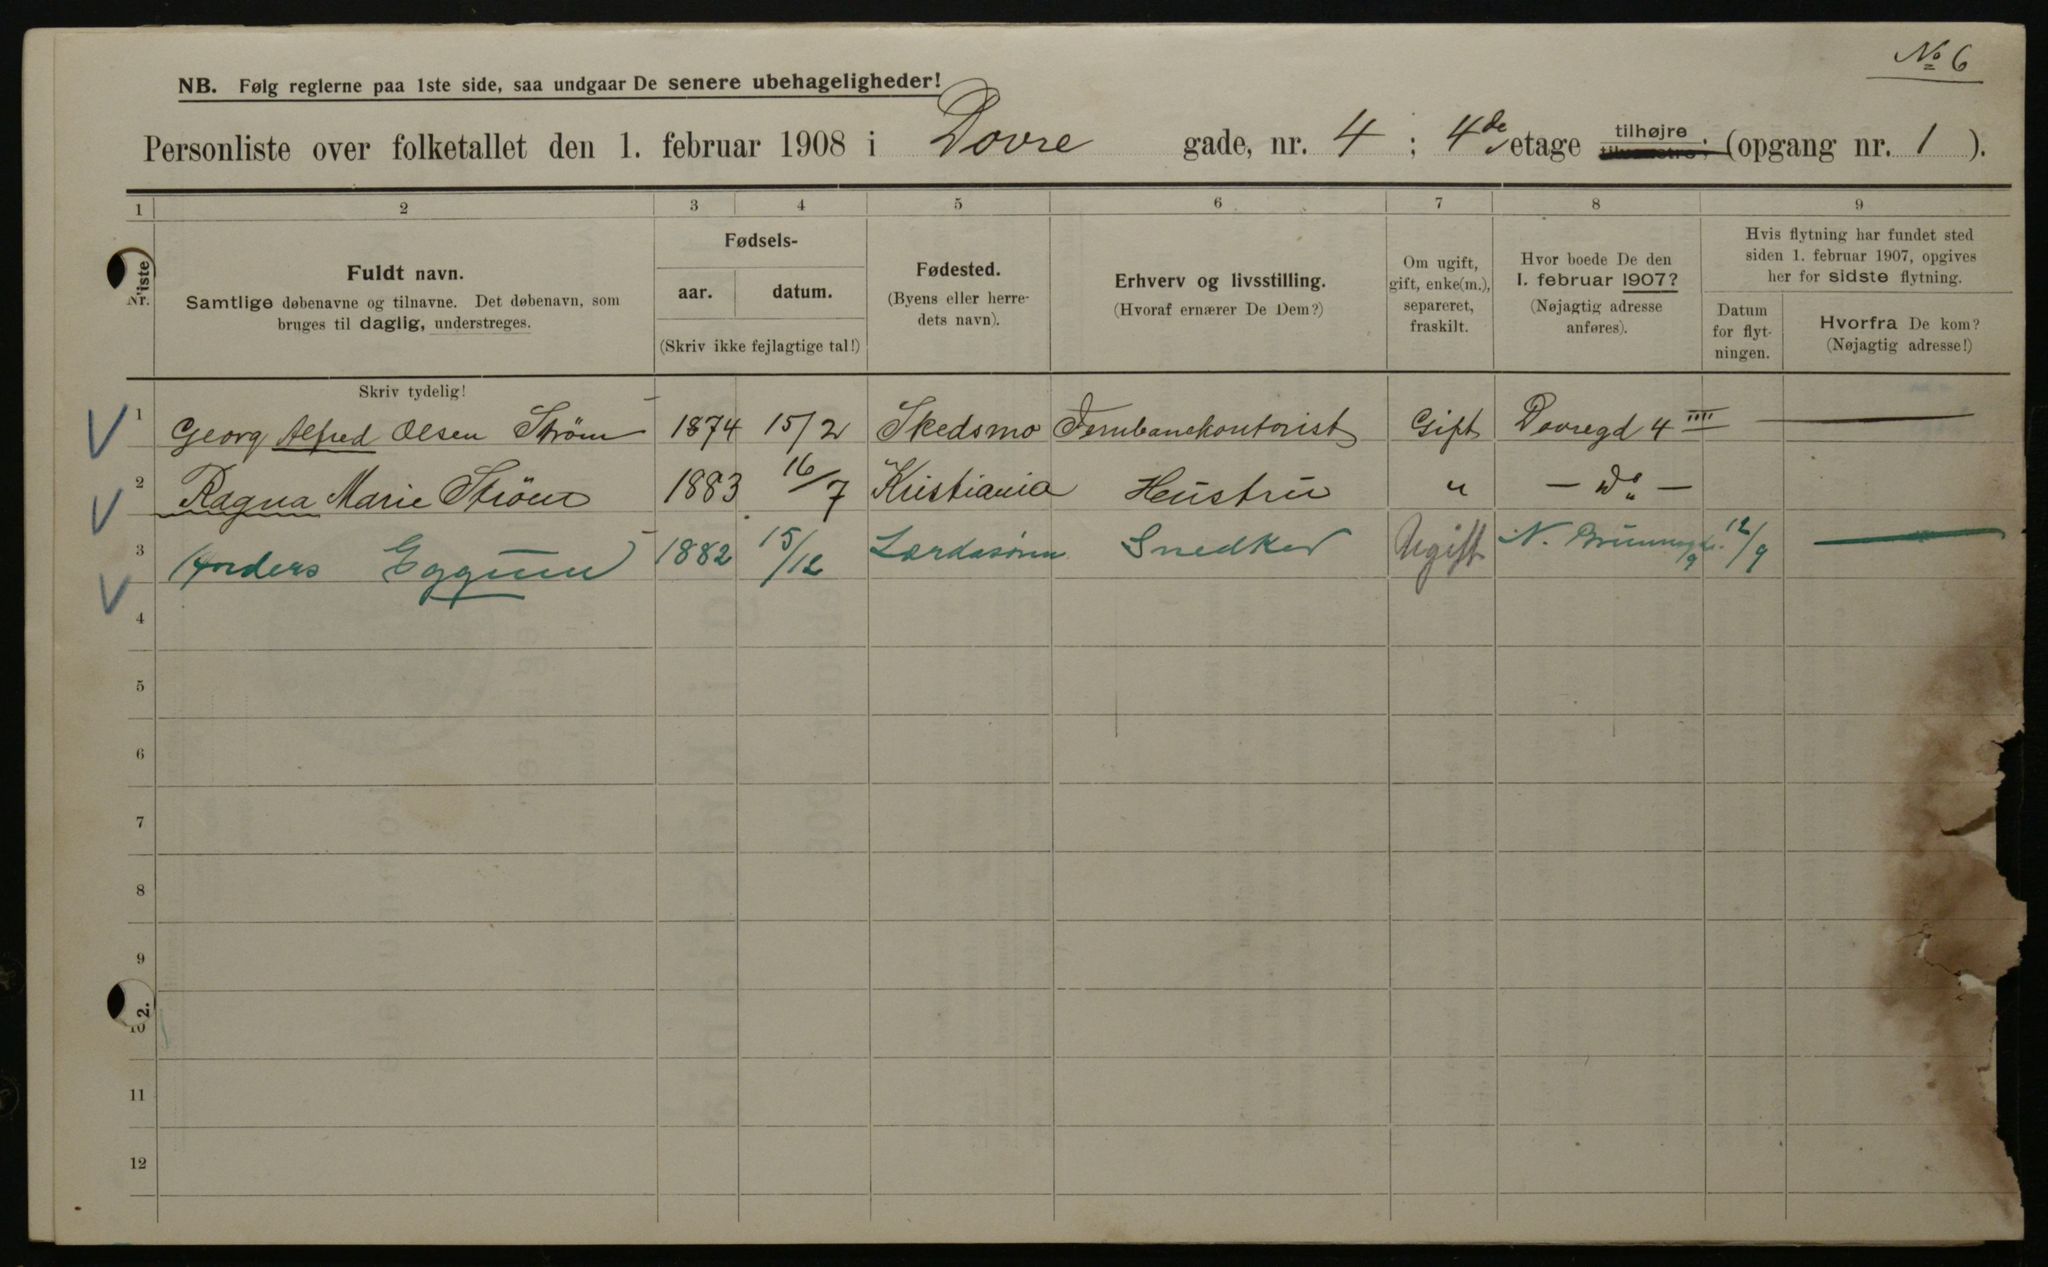 No 6
NB. Følg reglerne paa 1ste side, saa undgaar De senere ubehageligheder!
Personliste over folketallet den 1. februar 1908 i Dovre gade, nr. 4 ; 4de etage tilhøjre tilvenstre; (opgang nr. 1 ).
1 2 3 4 5 6 7 8 9
Liste Nr.
Fuldt navn.
Samtlige døbenavne og tilnavne. Det døbenavn, som
bruges til daglig, understreges.
Fødsels-
aar. datum.
(Skriv ikke fejlagtige tal!)
Fødested.
(Byens eller herre-
dets navn).
Erhverv og livsstilling.
(Hvoraf ernærer De Dem?)
Om ugift,
gift, enke(m.),
separeret,
fraskilt.
Hvor boede De den
1. februar 1907?
(Nøjagtig adresse
anføres).
Hvis flytning har fundet sted
siden 1. februar 1907, opgives
her for sidste flytning.
Datum
for flyt-
ningen.
Hvorfra De kom?
(Nøjagtig adresse!)
Skriv tydelig!
1 Georg Alfred Olsen Strøm 1874 15/2 Skedsmo Jernbanekontorist Gift Dovregd 4 IIII
2 Ragna Marie Strøm 1883 16/7 Kristiania Hustru " — Do —
3 Anders Eggum 1882 15/12 Lærdasøren Snedker Ugift N. 12/9
4
5
6
7
8
9
10
2.
11
12